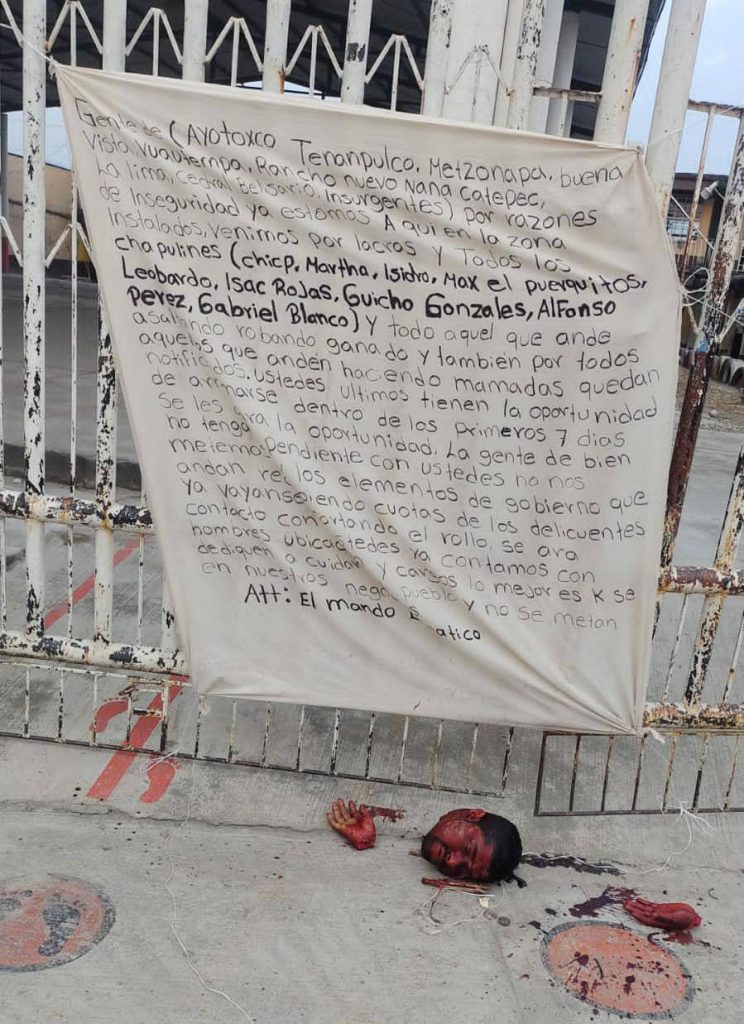 Gente de (Ayotoxco Tenanpulco, Metzonapa, buena
Vista, Vuautempa, Rancho nuevo Nana Catepec,
La lima, Cedral Belisario, Insurgentes) por razones
de Inseguridad ya estamos Aqui en la zona
Instalados, venimos por lacras y Todos los
chapulines (chicp, Martha, Isidro, Max el puerquitos,
Leobardo, Isac Rojas, Guicho Gonzales, Alfonso
Perez, Gabriel Blanco) Y todo aquel que ande
asaltando robando ganado y también por todos
aquellos que andén haciendo mamadas quedan
notificados. ustedes ultimos tienen la oportunidad
de dentro de los primeros 7 dias
se les la oportunidad, La gente de bien
no tenga pendiente con ustedes no nos
metemos los elementos de gobierno que
andan cuotas de los delicuentes
ya el rollo, se ara
contacto con ya contamos con
hombres y lo mejor es K se
dediquen a cuidar pueblo y no se metan
en nuestros
Att: El mando